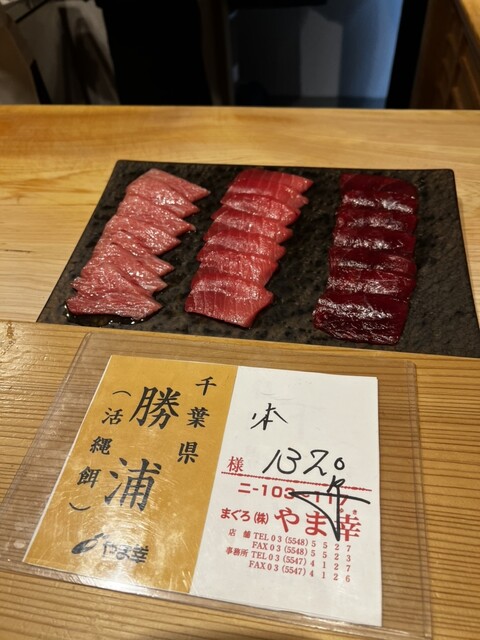 千葉県
勝浦
(活縄餌)
やま幸
本
様
132.0
ニ-103-11
まぐろ(株)やま幸
店舗 TEL 03(5548)5527
FAX 03(5548)5528
事務所 TEL 03(5547)4127
FAX 03(5547)4126